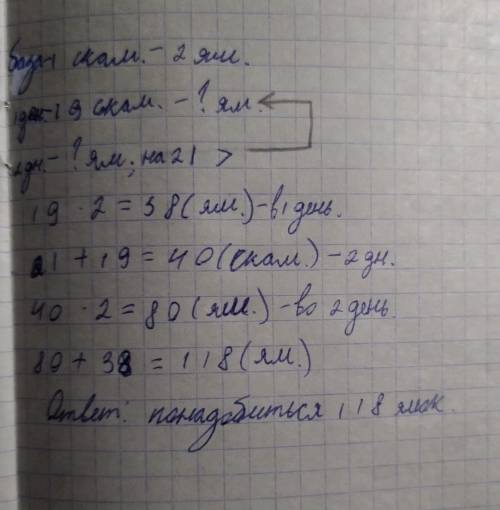 база-1 скам. - 2 ям.
1 дн.-19 скам. - ? ям.
2 дн.- ? ям., на 21 >
19 · 2 = 38 (ям.) - в 1 день.
21 + 19 = 40 (скам.) - 2 дн.
40 · 2 = 80 (ям.) - во 2 день.
80 + 38 = 118 (ям.)
Ответ: понадобиться 118 ямок.